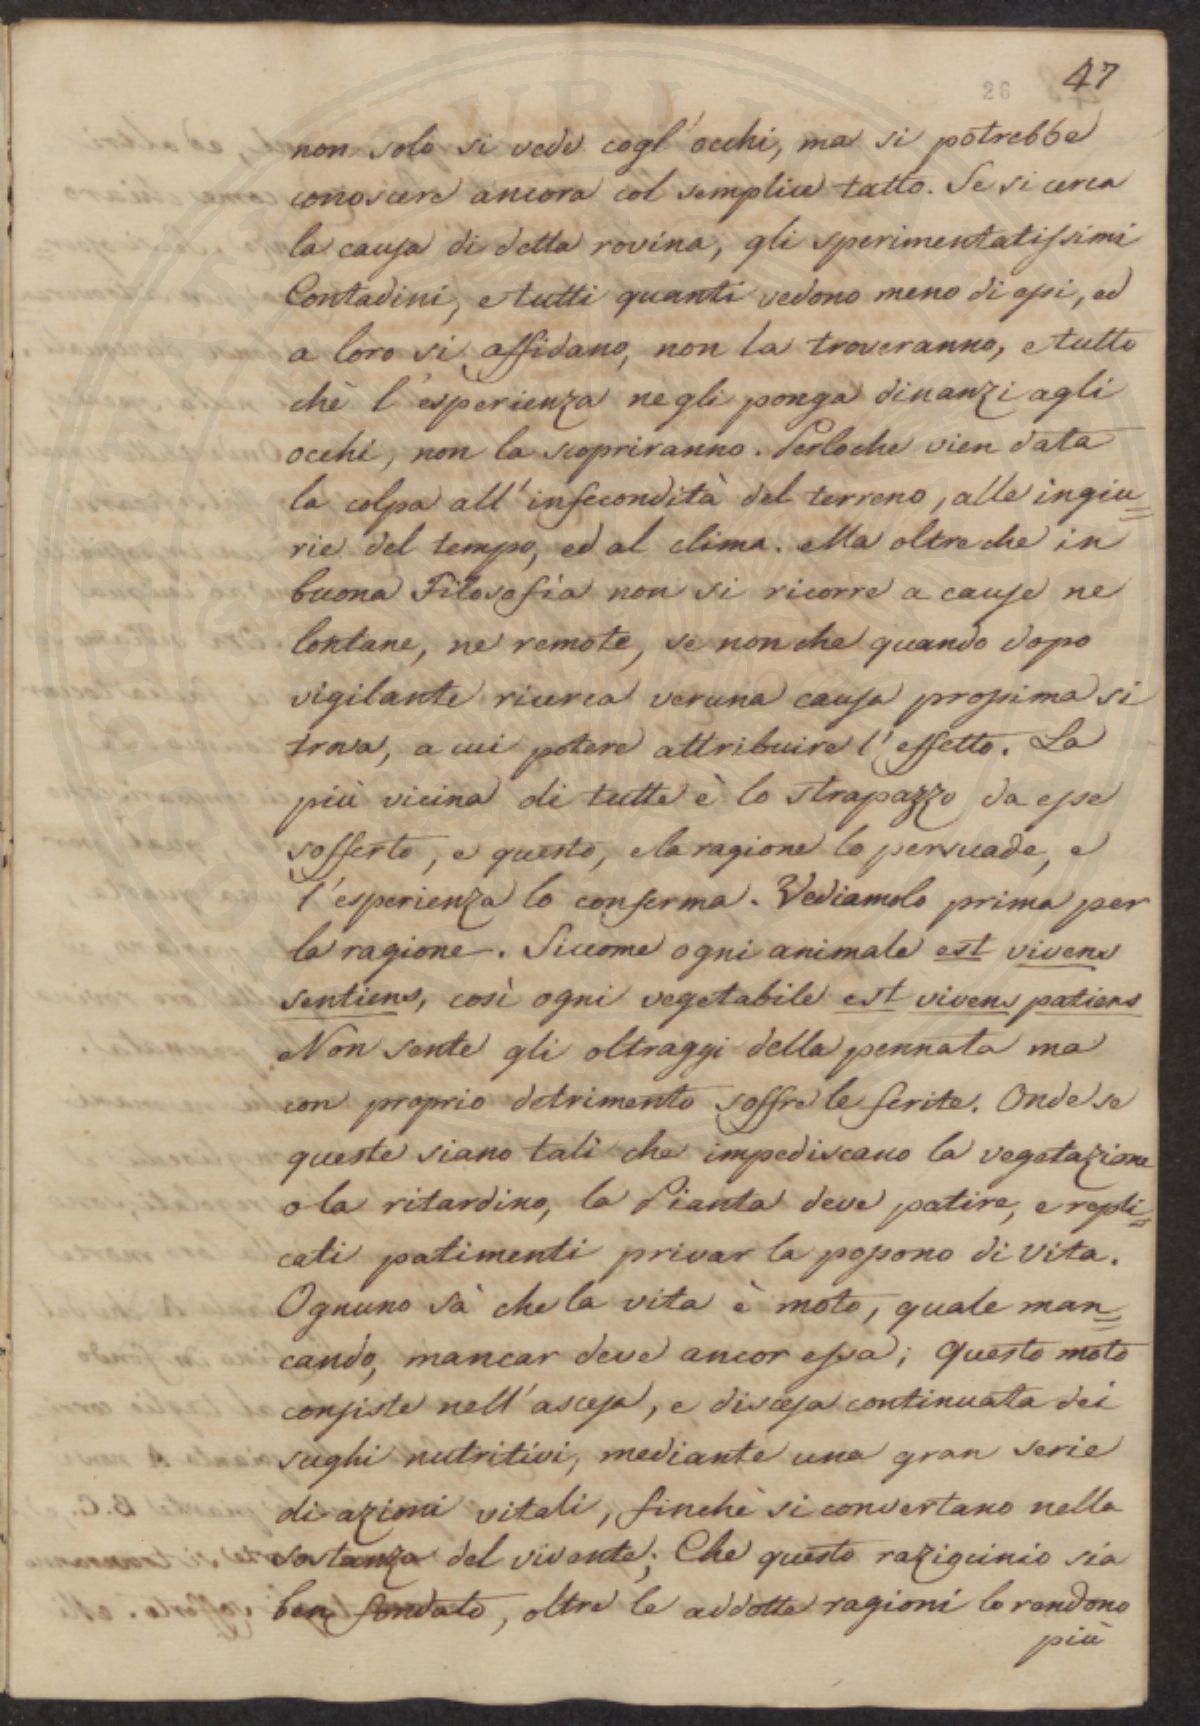 26 47
non solo si vede cogl'occhi, ma si potrebbe
conoscere ancora col semplice tatto. Se si cerca
la causa di detta rovina, gli sperimentatissimi
Contadini, e tutti quanti vedono meno di essi, ed
a loro si affidano, non la troveranno, e tutto
chè l'esperienza ne gli ponga dinanzi agli
occhi, non la scopriranno. Perloche vien data
la colpa all'infecondità del terreno, alle ingiu=
rie del tempo, ed al clima. Ma oltre che in
buona Filosofia non si ricorre a cause ne
lontane, ne remote, se non che quando dopo
vigilante ricerca veruna causa prossima si
trova, a cui potere attribuire l'effetto. La
più vicina di tutte è lo strapazzo da esse
sofferto, e questo, e la ragione lo persuade, e
l'esperienza lo conferma. Vediamolo prima per
la ragione. Siccome ogni animale est vivens
sentiens, così ogni vegetabile est vivens patiens
Non sente gli oltraggi della pennata ma
con proprio detrimento soffre le ferite. Onde se
queste siano tali che impediscano la vegetazione
o la ritardino, la Pianta deve patire, e repli=
cati patimenti privar la possono di vita.
Ognuno sà che la vita è moto, quale man=
cando, mancar deve ancor essa; Questo moto
consiste nell'ascesa, e discesa continuata dei
sughi nutritivi, mediante una gran serie
di azioni vitali, finchè si convertano nella
sostanza del vivente; Che questo raziocinio sia
ben fondato, oltre le addotte ragioni lo rendono
più